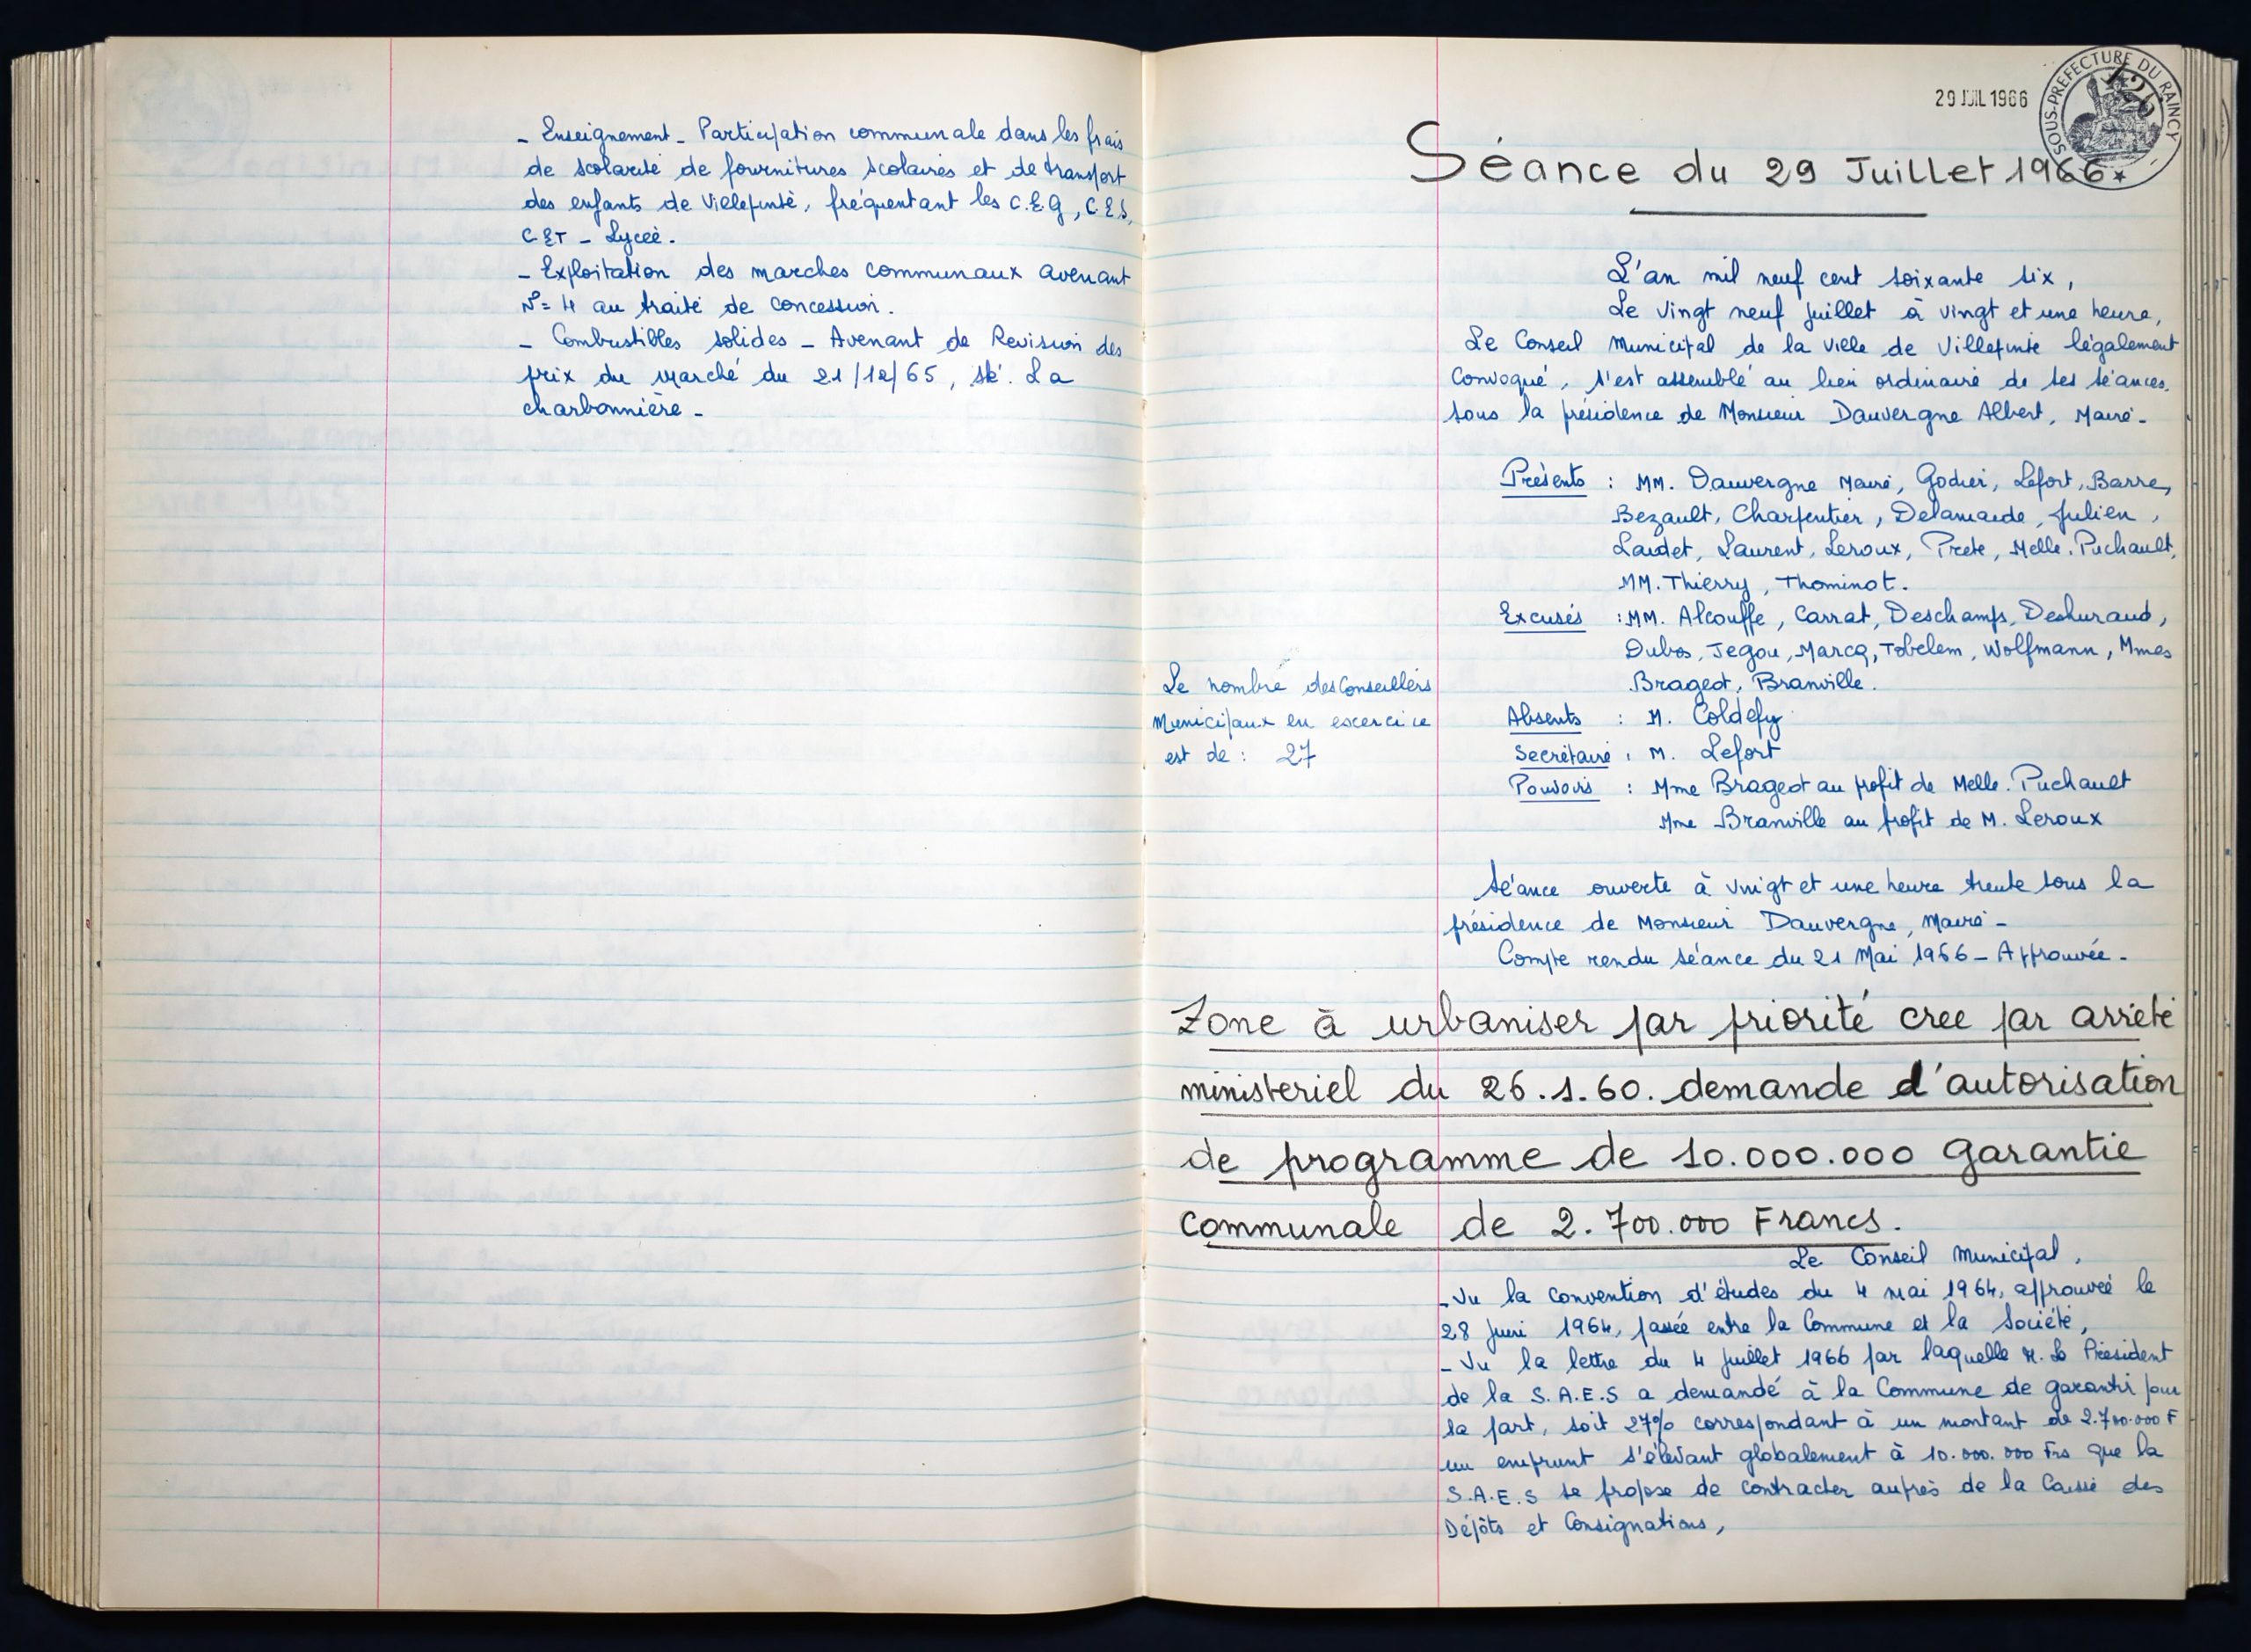 - Enseignement - Participation communale dans les frais
de scolarité de fournitures scolaires et de transport
des enfants de Villepinte, fréquentant les C.E.G, C.E.S,
C E T - Lycée.
- Exploitation des marches communaux avenant
N°= 4 au traité de concession.
- Combustibles solides - Avenant de Revision des
prix du marché du 21/12/65, Sté. La
charbonnière -
29 JUIL 1966
SOUS-PRÉFECTURE DU RAINCY
Séance du 29 Juillet 1966
L'an mil neuf cent soixante six,
Le vingt neuf juillet à vingt et une heure,
Le Conseil Municipal de la ville de Villepinte légalement
Convoqué, s'est assemblé au lieu ordinaire de ses séances.
sous la présidence de Monsieur Dauvergne Albert, Maire -
Présents : MM. Dauvergne Maire, Godier, Lefort, Barre,
Bezault, Charpentier, Delamarde, Julien,
Laidet, Laurent, Leroux, Prete, Melle. Puchault,
MM. Thierry, Thominot.
Excusés : MM. Alcouffe, Carrat, Deschamps, Deshuraud,
Dubos, Jegou, Marcq, Tobelem, Wolfmann, Mmes
Brageot, Branville.
Le nombre des Conseillers
Municipaux en excercice
est de : 27
Absents : M. Coldefy
Secrétaire : M. Lefort
Pouvoirs : Mme Brageot au profit de Melle. Puchault
Mme Branville au profit de M. Leroux
Séance ouverte à vingt et une heure trente sous la
présidence de Monsieur Dauvergne, Maire -
Compte rendu séance du 21 Mai 1966 - Approuvée -
Zone à urbaniser par priorité cree par arrêté
ministeriel du 26.1.60. demande d'autorisation
de programme de 10.000.000 garantie
communale de 2.700.000 Francs.
Le Conseil Municipal,
- Vu la convention d'études du 4 mai 1964, approuvée le
28 Juin 1964, passée entre la Commune et la Société,
- Vu la lettre du 4 Juillet 1966 par laquelle M. Le Président
de la S.A.E.S a demandé à la Commune de garantir pour
sa part, soit 27% correspondant à un montant de 2.700.000 F
un emprunt s'élevant globalement à 10.000.000 Frs que la
S.A.E.S se propose de contracter auprès de la Caisse des
Dépôts et Consignations,